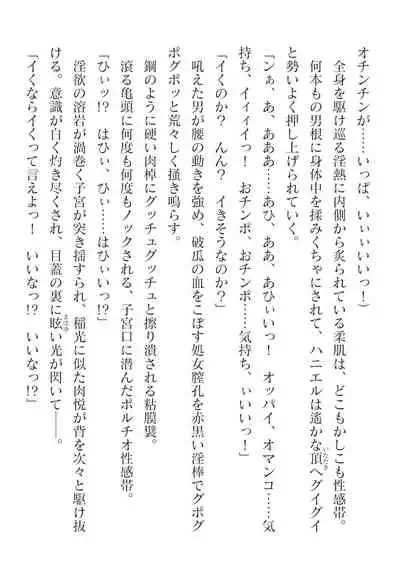 オチンチンが……いっぱ、いぃぃいいっ！）
　全身を駆け巡る淫熱に内側から炙られている柔肌は、どこもかしこも性感帯。
　何本もの男根に身体中を揉みくちゃにされて、ハニエルは遥かな頂へグイグイ
と勢いよく押し上げられていく。
「ンぁ、あ、あああ……あひ、ああ、あひぃいっ！　オッパイ、オマンコ……気
持ち、イィィイっ！　おチンポ、おチンポ……気持ち、ぃいいっ！」
「イくのか？　んん？　イきそうなのか？」
　吼えた男が腰の動きを強め、破瓜の血をこぼす処女膣孔を赤黒い淫棒でグポグ
ポグポッと荒々しく掻き鳴らす。
　鋼のように硬い肉棹にグッチュグッチュと擦り潰される粘膜襞。
　滾る亀頭に何度も何度もノックされる、子宮口に潜んだポルチオ性感帯。
「ひぃッ!?　はひぃ、ひぃ……はひぃいっ!?」
　淫欲の溶岩が渦巻く子宮が突き揺すられ。稲光に似た肉悦が背を次々と駆け抜
ける。意識が白く灼き尽くされ、目蓋の裏に眩い光が閃いて――。
「イくならイくって言えよっ！　いいなっ!?　いいなっ!?」